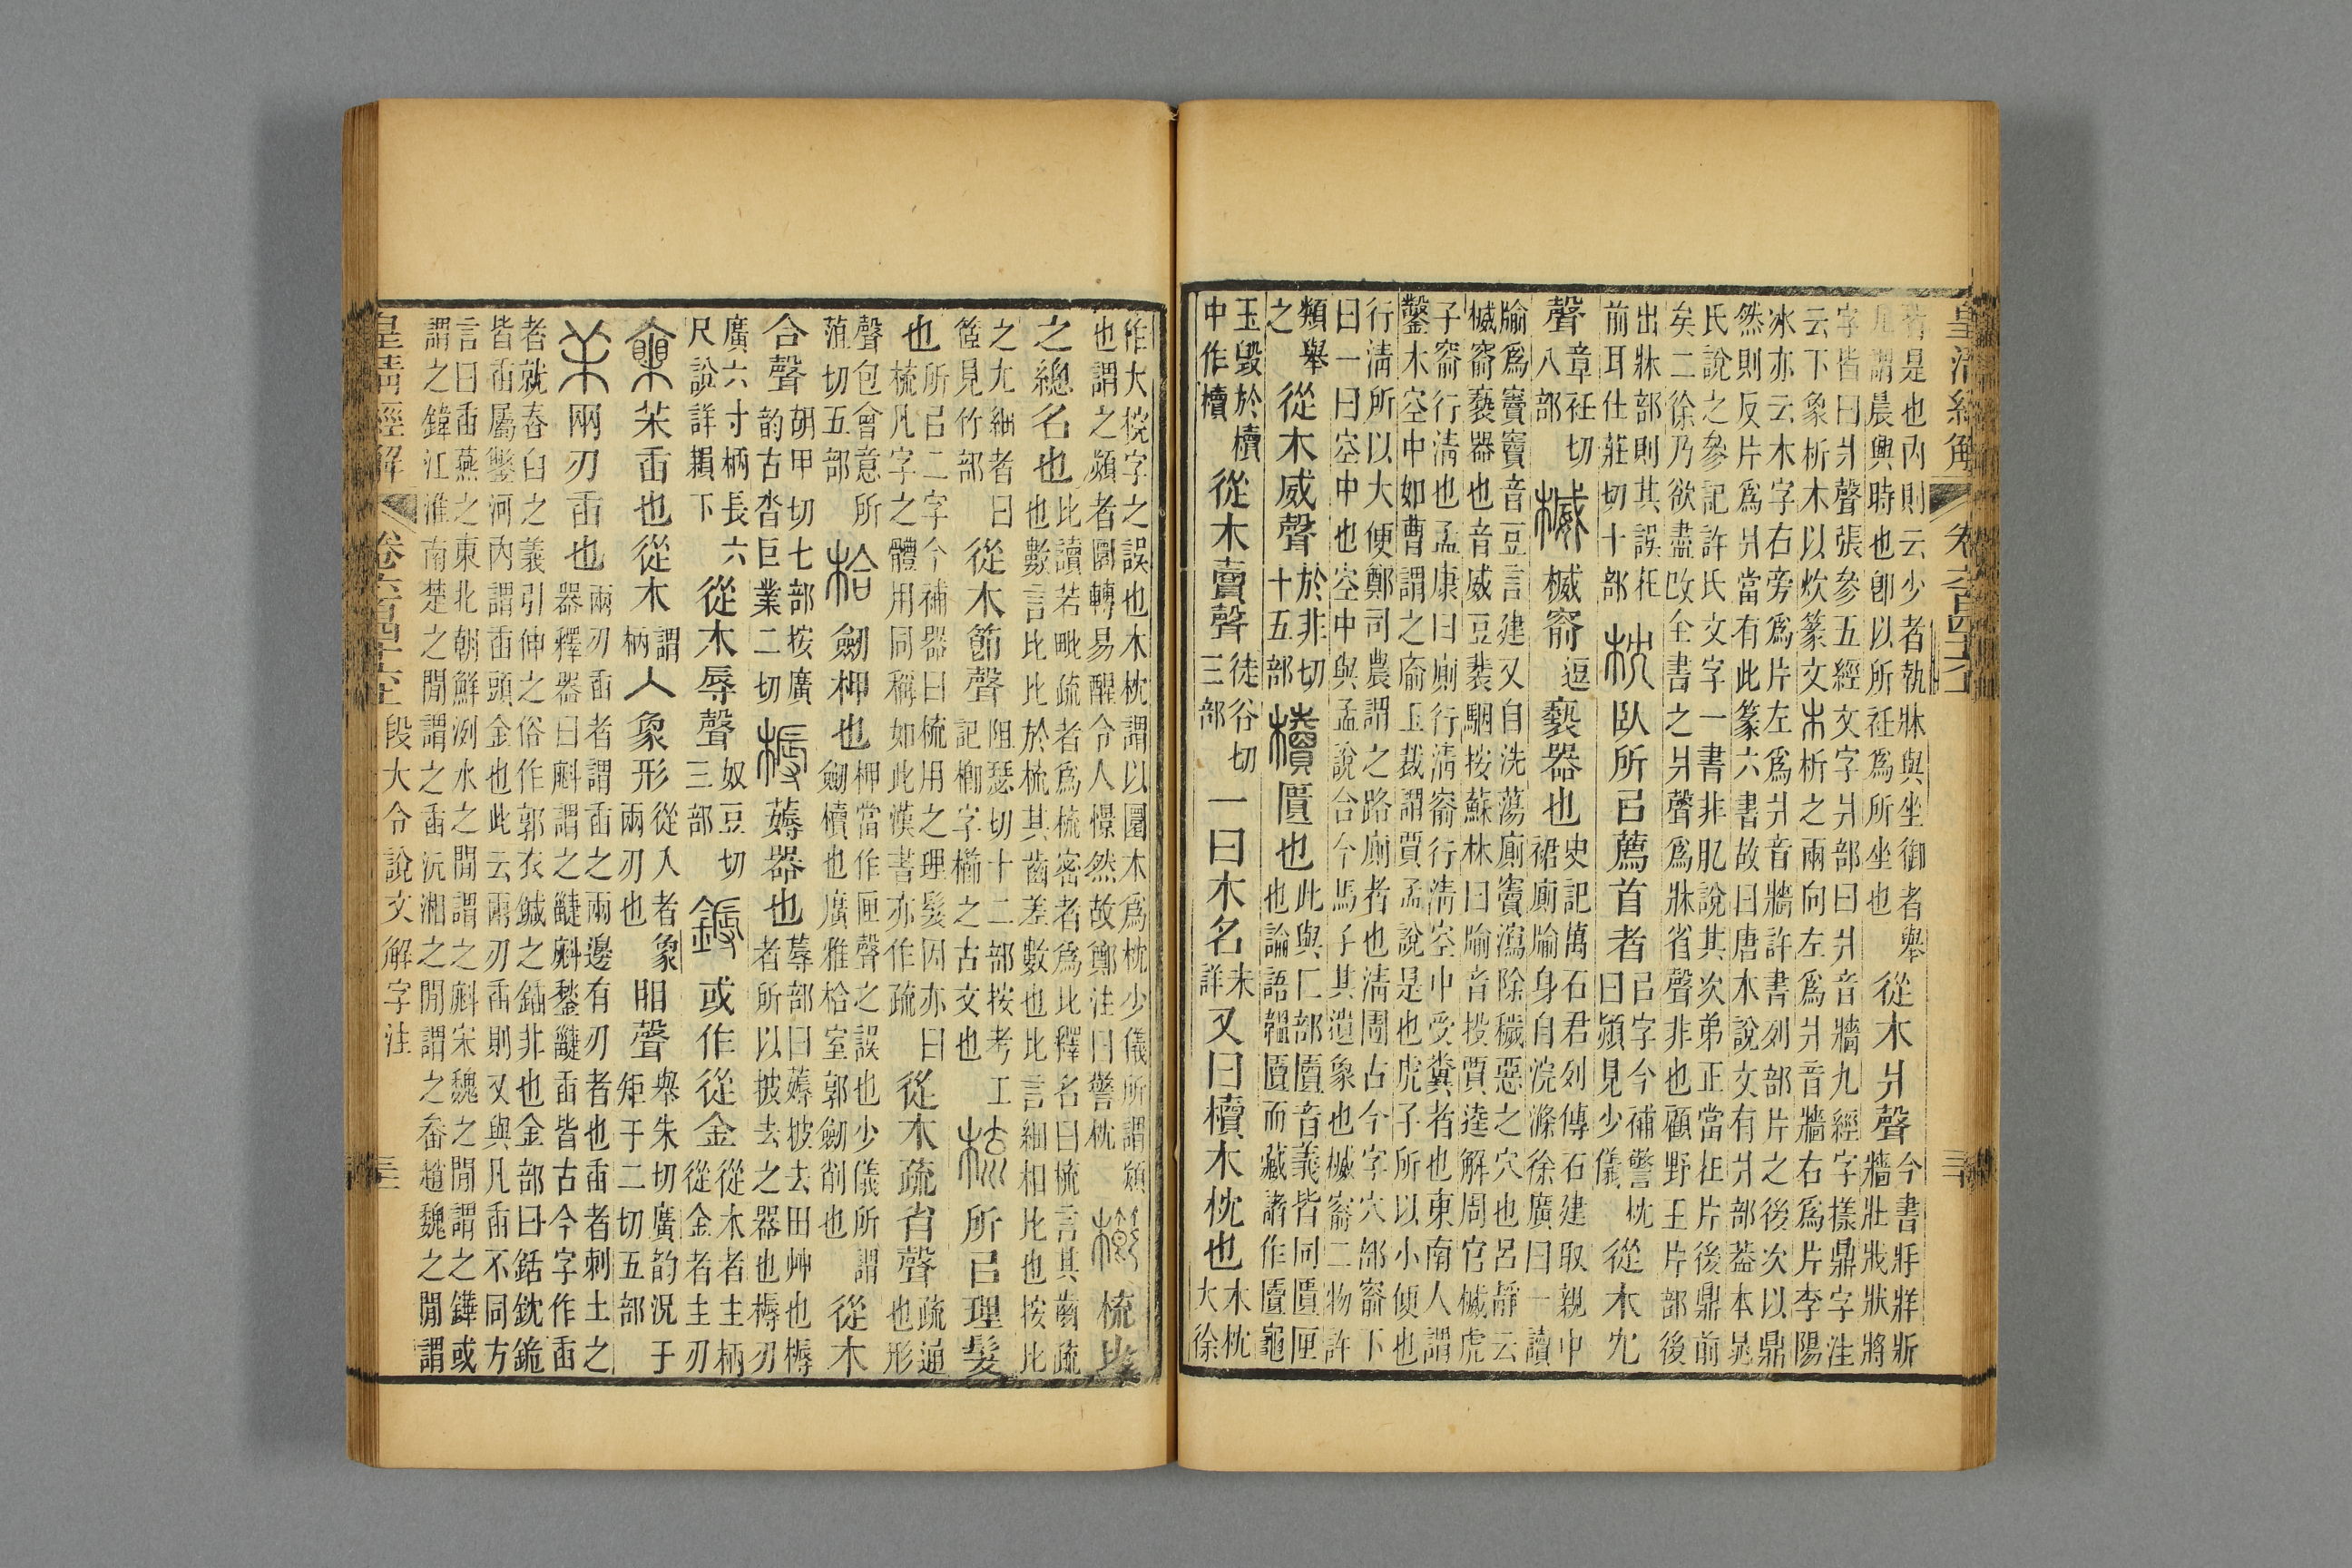 皇清經解 卷六百四十六
者是也內則云少者執牀與坐御者舉
几謂晨興時也卽以所衽爲所坐也 從木爿聲 今書牀牂斨
牆壯戕狀將
字皆曰爿聲張參五經文字爿部曰爿音牆九經字樣鼎字注
云下象析木以炊篆文木析之兩向左爲爿音牆右爲片李陽
冰亦云木字右旁爲片左爲爿音牆許書列部片之後次以鼎
然則反片爲爿當有此篆六書故曰唐本說文有爿部葢本晁
氏說之參記許氏文字一書非肊說其次弟正當在片後鼎前
矣二徐乃欲盡改全書之爿聲爲牀省聲非也顧野王片部後
出牀部則其誤在
前耳仕莊切十部 枕 臥所㠯薦首者 㠯字今補警枕
曰熲見少儀 從木冘
聲 章衽切
八部 楲 楲窬 逗 褻器也 史記萬石君列傳石建取親中
裙廁牏身自浣滌徐廣曰一讀
牏爲竇竇音豆言建又自洗蕩廁竇瀉除穢惡之穴也呂靜云
楲窬褻器也音威豆裴駰按蘇林曰牏音投賈逵解周官楲虎
子窬行淸也孟康曰廁行淸窬行淸空中受糞者也東南人謂
鑿木空中如曹謂之窬玉裁謂賈孟說是也虎子所以小便也
行淸所以大便鄭司農謂之路廁者也淸圊古今字穴部窬下
曰一曰空中也空中與孟說合今馬子其遺象也楲窬二物許
類舉
之 從木威聲 於非切
十五部 櫝 匱也 此與匚部匵音義皆同匱匣
也論語韞匵而藏諸作匵龜
玉毀於櫝
中作櫝 從木賣聲 徒谷切
三部 一曰木名 未
詳 又曰櫝木枕也 木枕
大徐
作大梡字之誤也木枕謂以圜木爲枕少儀所謂熲
也謂之熲者圜轉易醒令人憬然故鄭注曰警枕 櫛 梳比
之總名也 比讀若毗疏者爲梳密者爲比釋名曰梳言其齒疏
也數言比比於梳其齒差數也比言細相比也按比
之尢細者曰
䇫見竹部 從木節聲 阻瑟切十二部按考工
記楖字櫛之古文也 梳 所㠯理髮
也 所㠯二字今補器曰梳用之理髮因亦曰
梳凡字之體用同稱如此漢書亦作疏 從木疏省聲 疏通
也形
聲包會意所
菹切五部 㭘 劒柙也 柙當作匣聲之誤也少儀所謂
劒櫝也廣雅㭘室郭劒削也 從木
合聲 胡甲切七部按廣
韵古沓巨業二切 槈 薅器也 蓐部曰薅披去田艸也槈
者所以披去之器也槈刃
廣六寸柄長六
尺說詳下 從木辱聲 奴豆切
三部 鎒 或作從金 從木者主柄
從金者主刃
苿臿也從木 謂
柄 人象形 從入者象
兩刃也 䀠聲 舉朱切廣韵況于
矩于二切五部
苿 兩刃臿也 兩刃臿者謂臿之兩邊有刃者也臿者刺土之
器釋器曰𣂁謂之疀𣂁鍫疀臿皆古今字作臿
者就舂臼之義引伸之俗作郭衣鍼之鍤非也金部曰銛鈂鉇
皆臿屬鑿河內謂臿頭金也此云兩刃臿則又與凡臿不同方
言曰臿燕之東北朝鮮洌水之閒謂之𣂁宋魏之閒謂之鏵或
謂之鍏江淮南楚之閒謂之臿沅湘之閒謂之畚趙魏之閒謂
皇清經解 卷六百四十六 段大令說文解字注